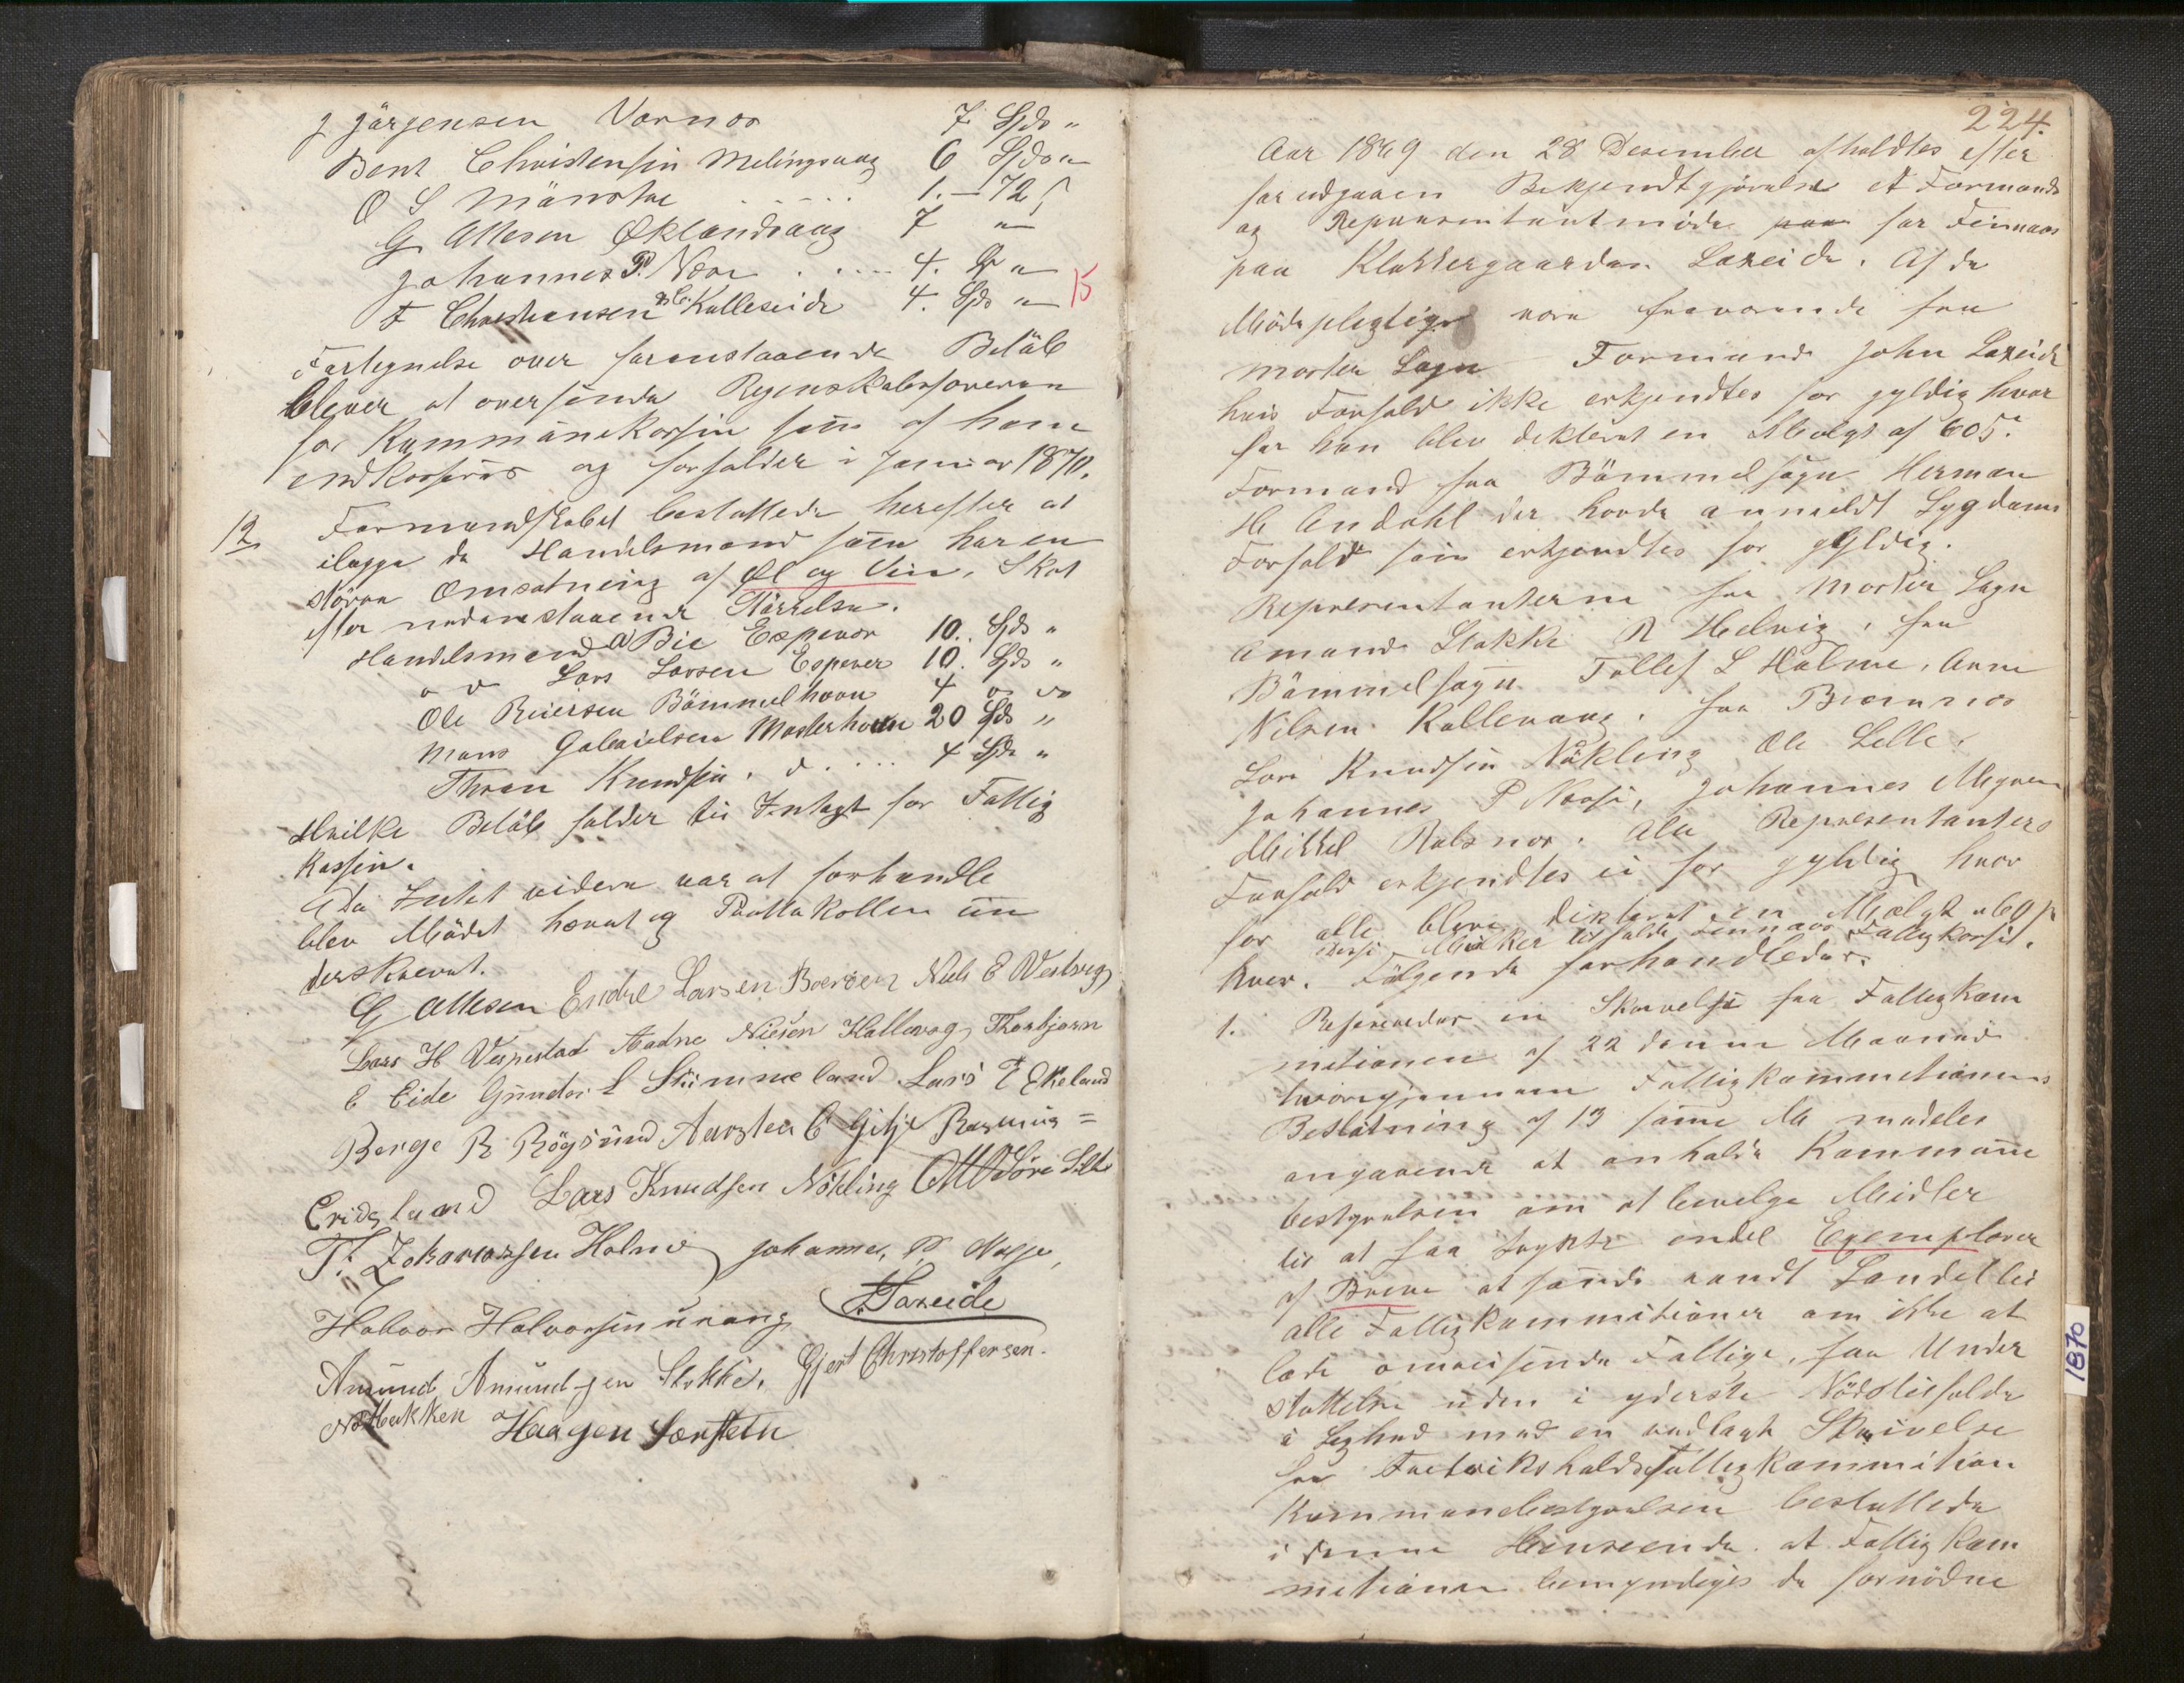 J Jörgensen Vornos 7 Spds "
Bent Christensen Melingsvaag 6 Spds "
O S Mönster . . . . . 1. — 72 ſ
G Ollesen Øklandsvaag 7 "
Johannes P. Nære . . . . 4. D "
F Christiansen Kulleseide 4. Spd " 15
Fortegnelse over foranstaaende Beløb
blever at oversende Regnskabsføreren
for Kommunekassen som af ham
indkasseres og forfalder i Januar 1870.
12 Formandskabet besluttede herefter at
ilægge de Handelsmænd som har en
större Omsætning af Øl og Viin, Skat
efter nedenstaaende Störrelse.
Handelsmand A Bie Espevær 10. Spds "
o d Lars Larsen Espevær 10. Spds "
Ole Reiersen Bömmelhavn 4 o do
Mons Gabrielsen Mosterhavn 20 Spds "
Thron Knudsen . d . . . . 4 Spds "
Hvilke Beløb falder til Indtægt for Fattig
kassen.
Da Intet videre var at forhandle
blev Mödet hævet og Protokollen un
derskrevet.
G Ollesen Endre Larsen Boersen Nils E Vestvig
Lars H Vespestad Aadne Nielsen Hallevag Thorbjørn
E Eide Gunder L Stümmeland Lars T Ekeland
Berge R Rögsund Aarsten C Gitje Rasmus =
Eridsland Lars Knudsen Nökling
T. Zakariassen Holme Johannes P Nesse,
Halvor Halvorsen Urang J. Laxeide
Amund Amundsen Stokke, Gjert Christoffersen.
Nøtbakken Haagen Særsten
224.
Aar 1869 den 28 Desember afholdtes efter
forudgaaen Bekjendtgjørelse et Formands
og Repræsentantmöde for Finnaas
paa Klokkergaarden Laxeide. Af de
Mödepligtige vare fraværende fra
Moster Sogn Formand John Laxeide
hvis Forfald ikke erkjendtes for gyldig hvor
for han blev dikteret en Mulgt af 60 ſ.
Formand fra Bömmel sogn Herman
H Andahl der havde anmeldt Sygdoms
Forfald som erkjendtes for gyldig.
Repræsentanterne fra Moster Sogn
Amund Stokke R Helvig, fra
Bömmelsogn Tollef L Holme, Arne
Nilsen Kallevaag. fra Bræmnæs
Lars Knudsen Nökling Ole Lelle,
Johannes P Næsse, Johannes Mögren
Mikkel Rubsnæs. Alle Repræsentanters
Forfald erkjendtes ei for gyldig hvor
for alle bleve dikteret en Mulgt a 60 ſ
hvilker tilfaldt Finnaas Fattigkasse.
hver. Fölgende forhandledes.
1. Refereredes en Skrivelse fra Fattigkom
mitionen af 22 denne Maaned
hvorigjennem Fattigkommitionens
Beslutning af 13 samme M meddeles
angaaende at anholde Kommune
bestyrelsen om at bevilge Midler
til at faa trykte endel Exemplarer
af Breve at sende rundt Landet til
alle Fattigkommitioner om ikke at
lade omreisende Fattige, faa Under
støttelse uden i yderste Nödstilfælde
i Lighed med en vedlagt Skrivelse
fra Fredrikshalds Fattigkommition
Kommunebestyrelsen besluttede
i denne Henseende at Fattigkom
mitionen bemyndiges de fornödne
1870